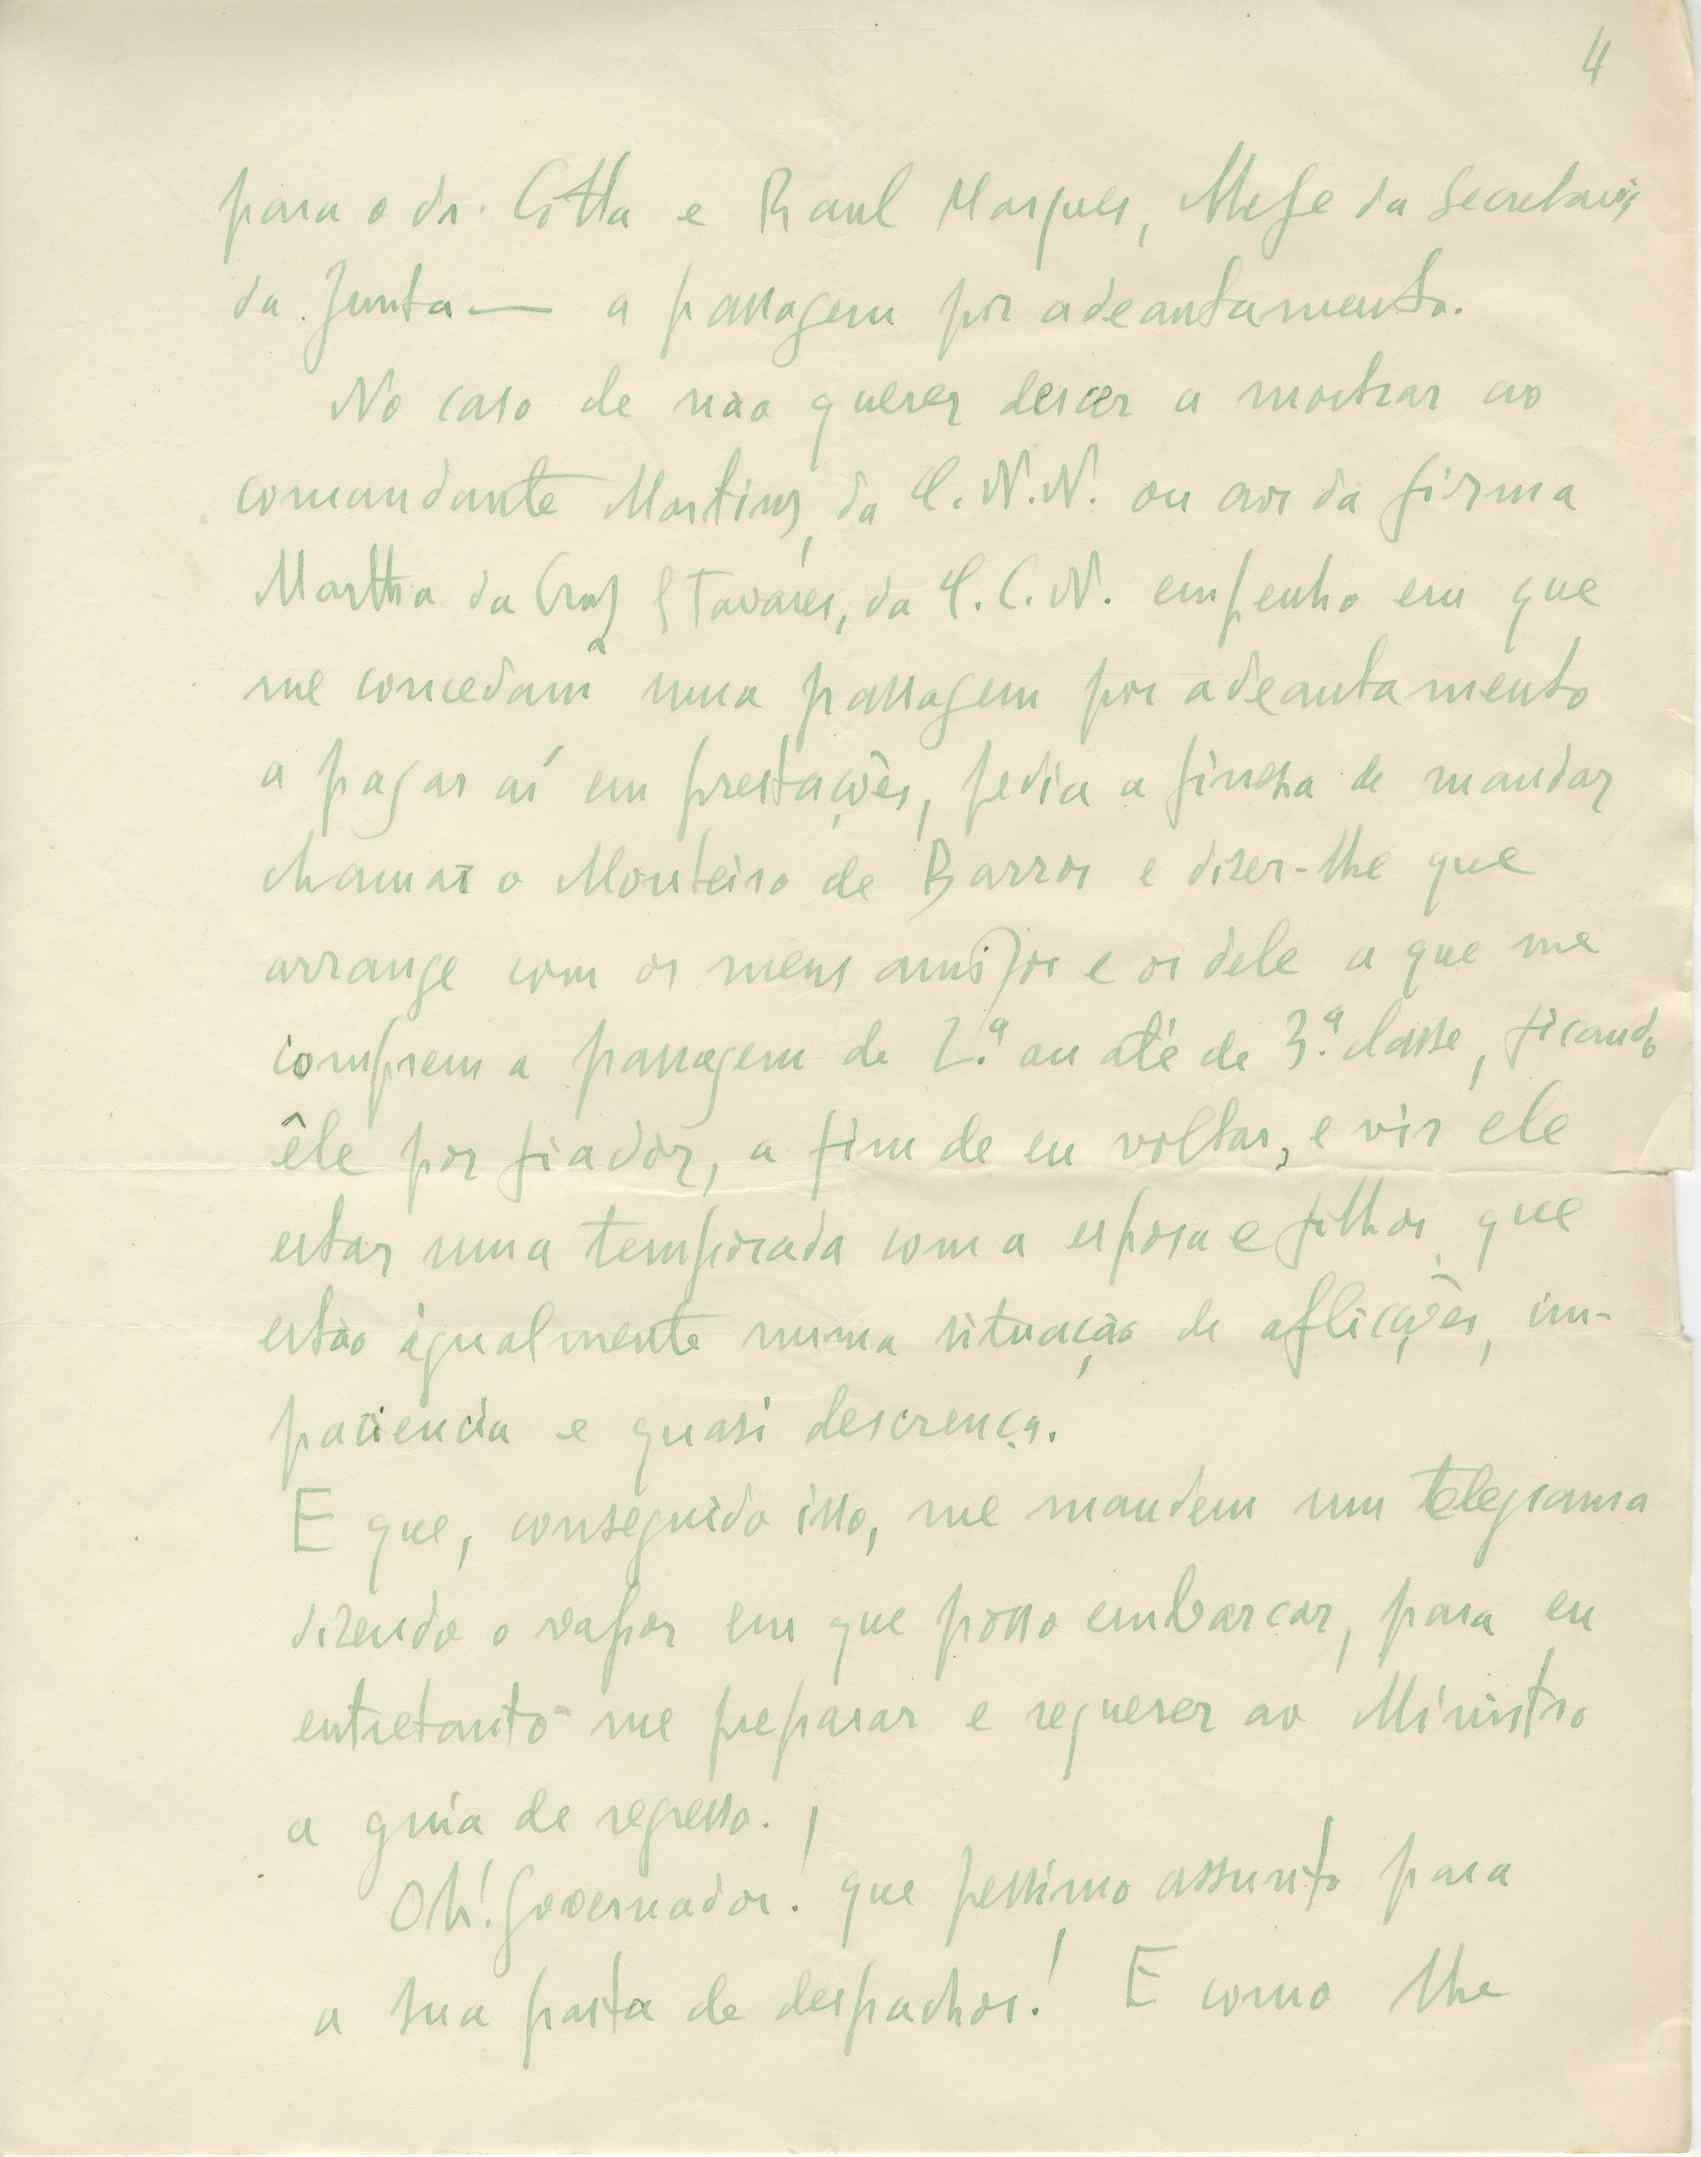 4
para o dr. Cotta e Raul Marques, Chefe da Secretaria
da Junta — a passagem por adeantamento.
No caso de não querer descer a mostrar ao
comandante Martins, da C.N.N. ou aos da firma
Martha da Cruz & Tavares, da C.C.N. empenho em que
me concedam uma passagem por adeantamento
a pagar aí em prestações, pedia a fineza de mandar
chamar o Monteiro de Barros e dizer-lhe que
arranje com os meus amigos e os dele a que me
comprem a passagem de 2.ª ou até de 3.ª classe, ficando
êle por fiador, a fim de eu voltar, e vir ele
estar uma temporada com a esposa e filhos, que
estão igualmente numa situação de aflicções, im-
paciencia e quasi descrença.
E que, conseguido isso, me mandem um telegrama
dizendo o vapor em que posso embarcar, para eu
entretanto me preparar e requerer ao Ministro
a guia de regresso.
Oh! Governador! que pessimo assunto para
a sua pasta de despachos! E como lhe